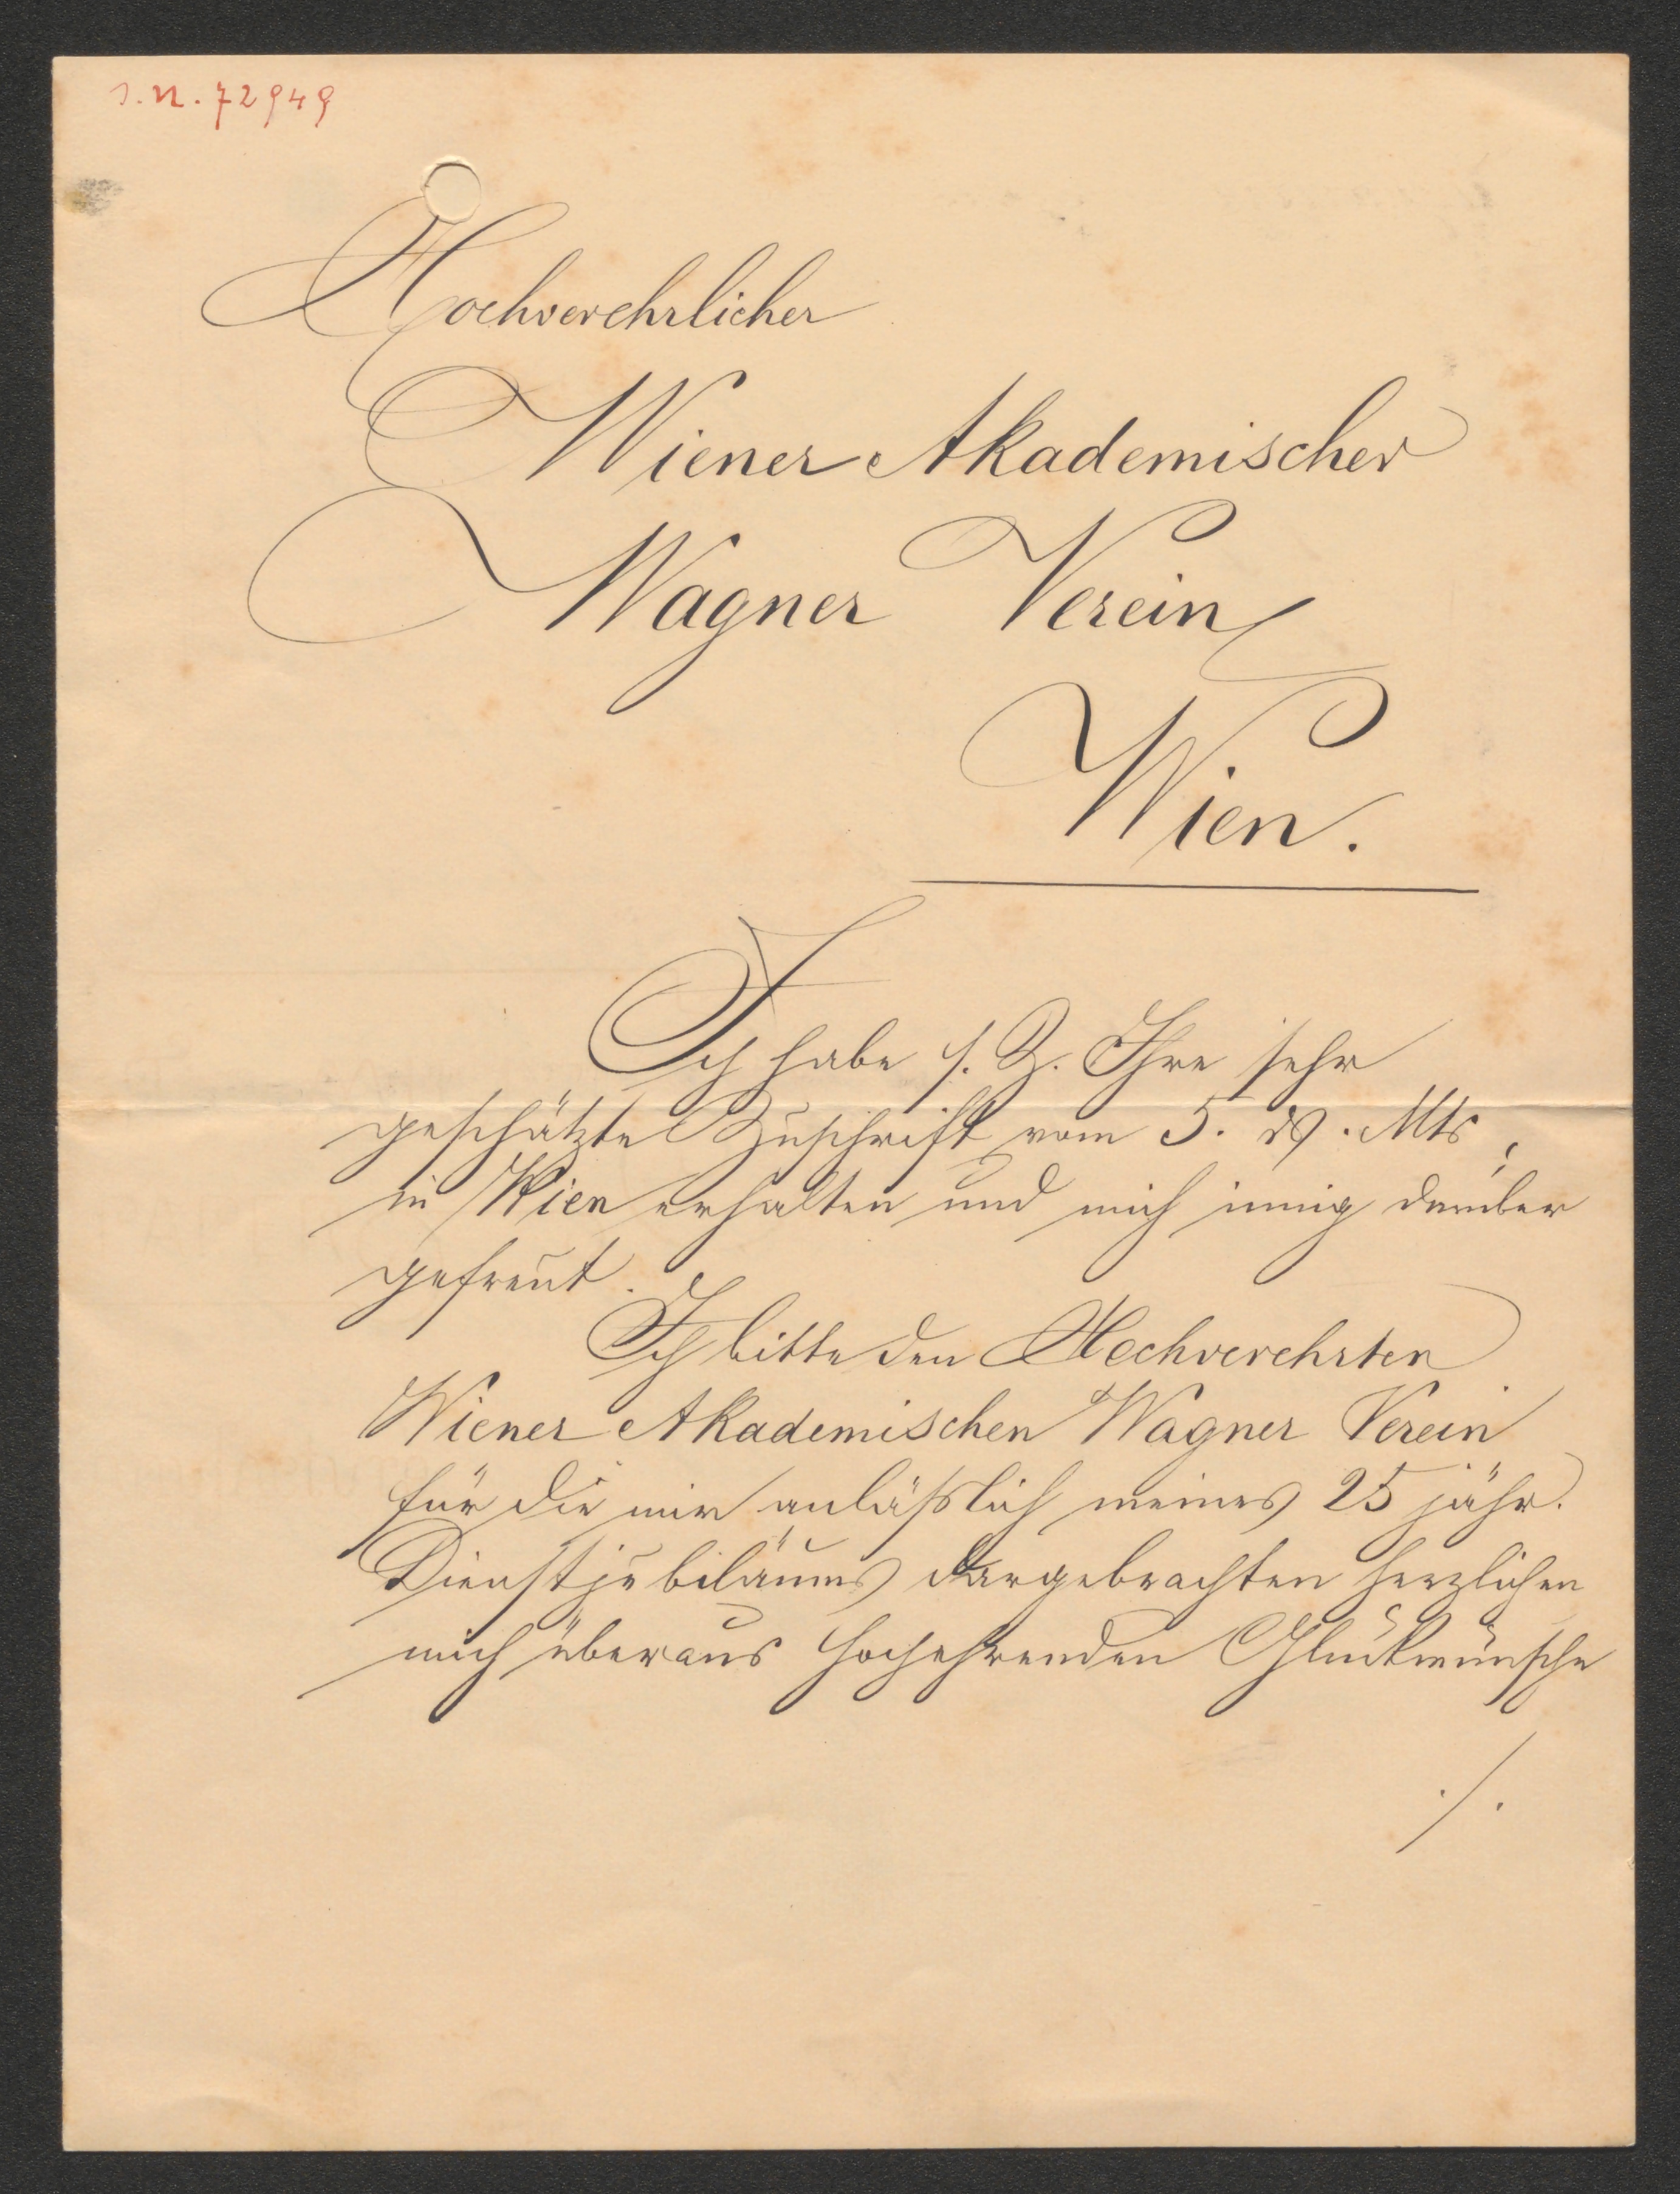 I.N. 72949
Hochverehrlicher
Wiener Akademischer
Wagner Verein
Wien.
Ich habe s. Z. Ihre sehr
geschätzte Zuschrift vom 5. d. Mts
in Wien erhalten und mich innig darüber
gefreut.
Ich bitte den Hochverehrten
Wiener Akademischen Wagner Verein
für die mir anläßlich meines 25 jähr.
Dienstjubiläums dargebrachten herzlichen
mich überaus hochehrenden Glückwünsche
./.